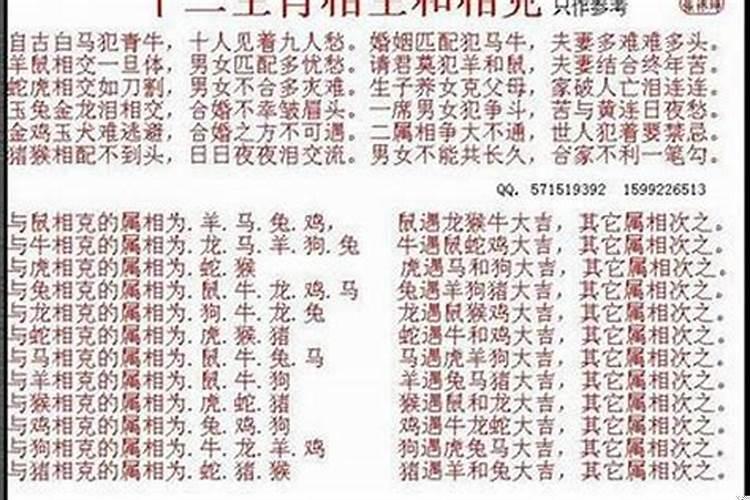 十二生肖相生和相克 只作参考
自古白马犯青牛，十人见着九人愁。婚姻匹配犯马牛，夫妻多难难多头。
羊鼠相交一旦体，男女匹配多忧愁。请君莫犯羊和鼠，夫妻结合终年苦。
蛇虎相交如刀割，男女不合多灾难。生子养女克父母，家破人亡泪连连。
玉兔金龙泪相交，合婚不幸皱眉头。一席男女犯争斗，苦与黄连日夜愁。
金鸡玉犬难逃避，合婚之方不可遇。二属相争大不通，世人犯着要禁忌。
猪猴相配不到头，日日夜夜泪交流。男女不能共长久，合家不利一笔勾。
QQ. 571519392 1599226513
与鼠相克的属相为.羊.马.兔.鸡, 鼠遇龙猴牛大吉，其它属相次之。
与牛相克的属相为.龙.马.羊.狗.兔 牛遇鼠蛇鸡大吉，其它属相次之。
与虎相克的属相为.蛇.猴 虎遇马和狗大吉，其它属相次之。
与兔相克的属相为.鼠.牛.龙.鸡.马 兔遇羊狗猪大吉，其它属相次之。
与龙相克的属相为.狗.牛.龙.兔 龙遇鼠猴鸡大吉，其它属相次之。
与蛇相克的属相为.虎.猴.猪 蛇遇牛和鸡大吉，其它属相次之。
与马相克的属相为.鼠.牛.兔.马 马遇虎羊狗大吉，其它属相次之。
与羊相克的属相为.鼠.牛.狗 羊遇兔马猪大吉，其它属相次之。
与猴相克的属相为.虎.蛇.猪 猴遇鼠和龙大吉，其它属相次之。
与鸡相克的属相为.兔.鸡.狗 鸡遇牛龙蛇大吉，其它属相次之。
与狗相克的属相为.牛.龙.羊.鸡 狗遇虎兔马大吉，其它属相次之。
与猪相克的属相为.蛇.猪.猴 猪遇羊和兔大吉，其它属相次之。